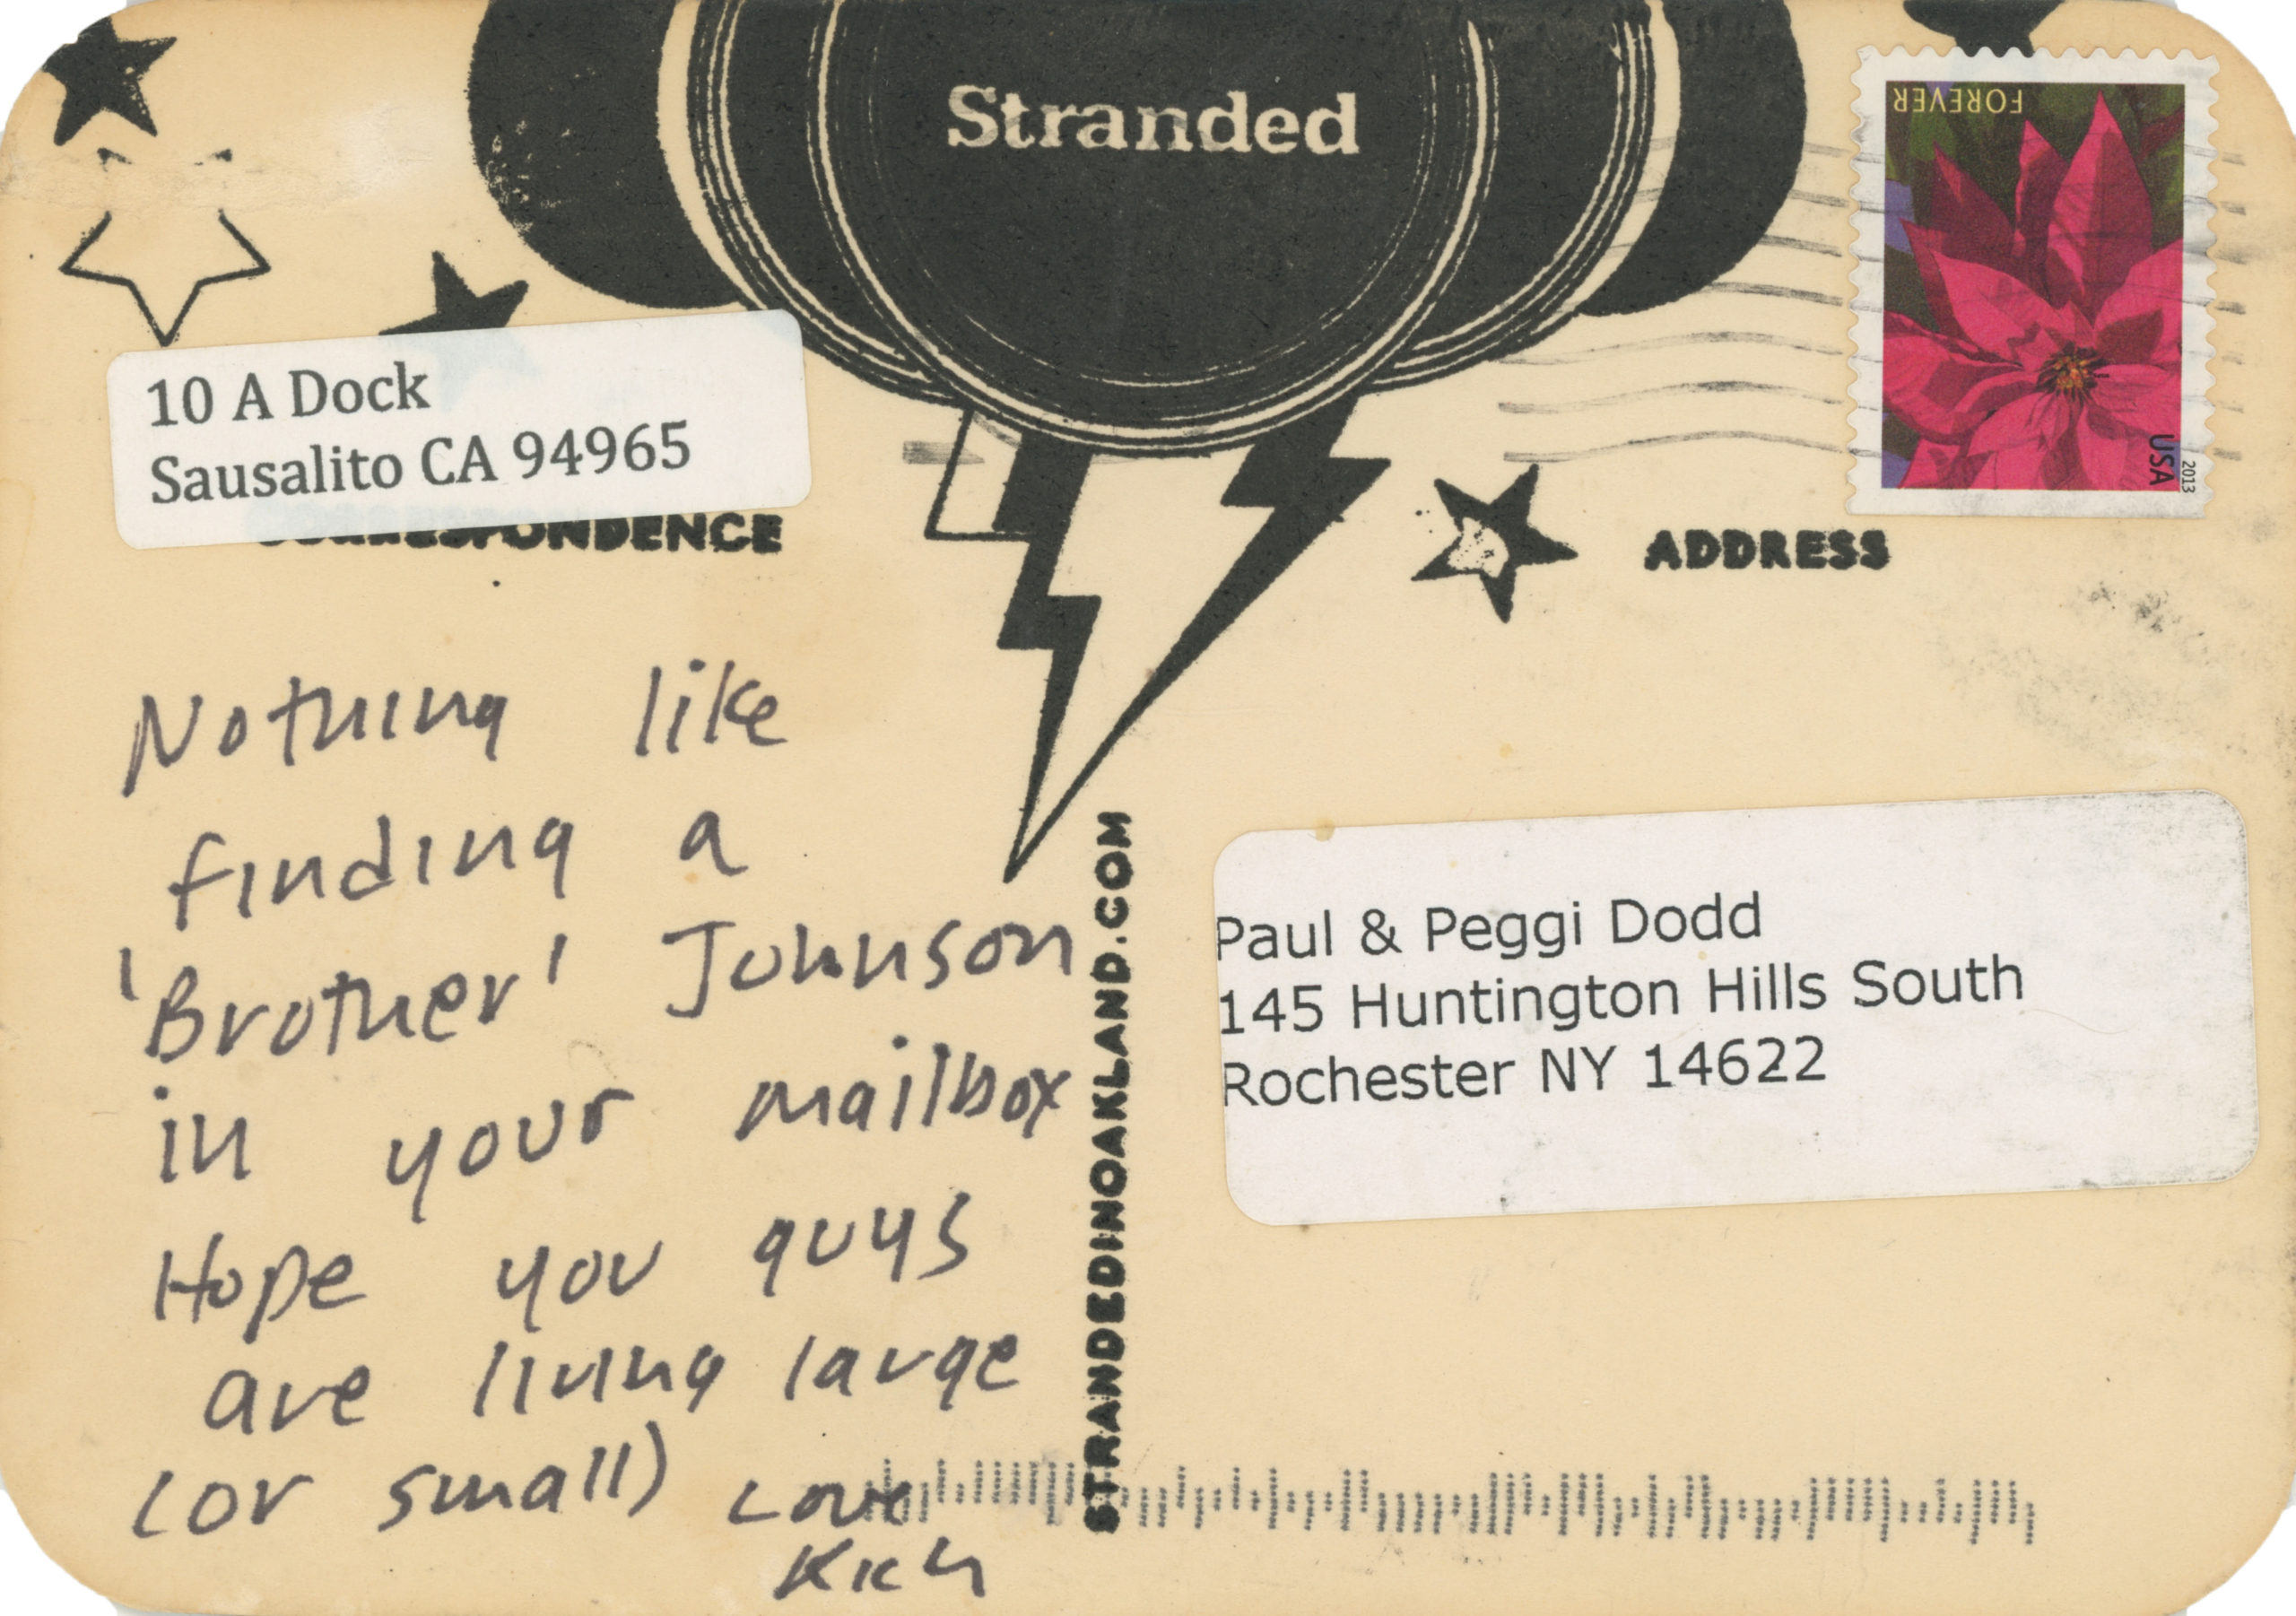 Stranded
FOREVER
USA
2013
10 A Dock
Sausalito CA 94965
CORRESPONDENCE
ADDRESS
Nothing like
finding a
'Brother' Johnson
in your mailbox
Hope you guys
are living large
(or small) Love
Rich
STRANDEDINOAKLAND.COM
Paul & Peggi Dodd
145 Huntington Hills South
Rochester NY 14622